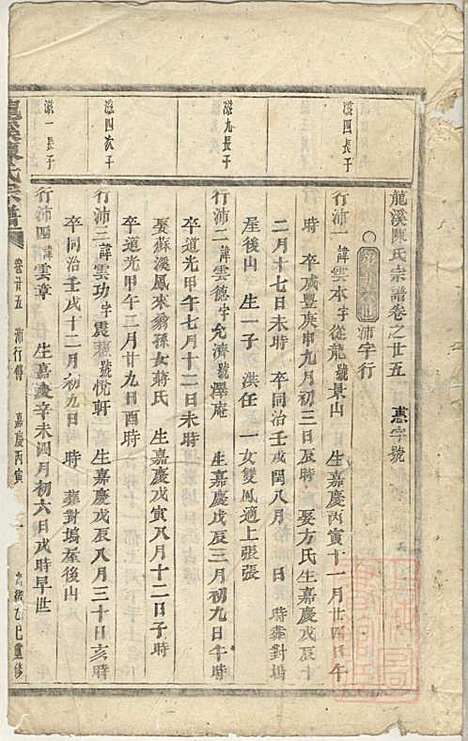 龍溪陳氏宗譜卷之廿五 惠字號
沛字行
滋四長子
行沛一諱雲水字從龍號景山 生嘉慶丙寅十一月廿四日午
時 卒咸豐庚申九月初三日辰時 娶方氏生嘉慶戊辰十
二月十七日未時 卒同治壬戌閏八月 日 時葬對塢
屋後山 生一子 洪任 一女雙鳳適上張張
滋九長子
行沛二諱雲德字允濟號澤庵 生嘉慶戊辰三月初九日午時
卒道光甲午七月十二日未時
娶蘇溪鳳來翁孫女蔣氏 生嘉慶戊寅八月十二日子時
卒道光甲午三月廿九日酉時
滋四次子
行沛三諱雲功字震 號悅軒 生嘉慶戊辰八月三十日亥時
卒同治壬戌十二月初九日 時 葬對塢屋後山
滋一長子
行沛四諱雲章 生嘉慶辛未閏月初六日戌時早世
龍溪陳氏宗譜 卷廿五 沛行傳 嘉慶丙寅 一 光緒乙巳重修